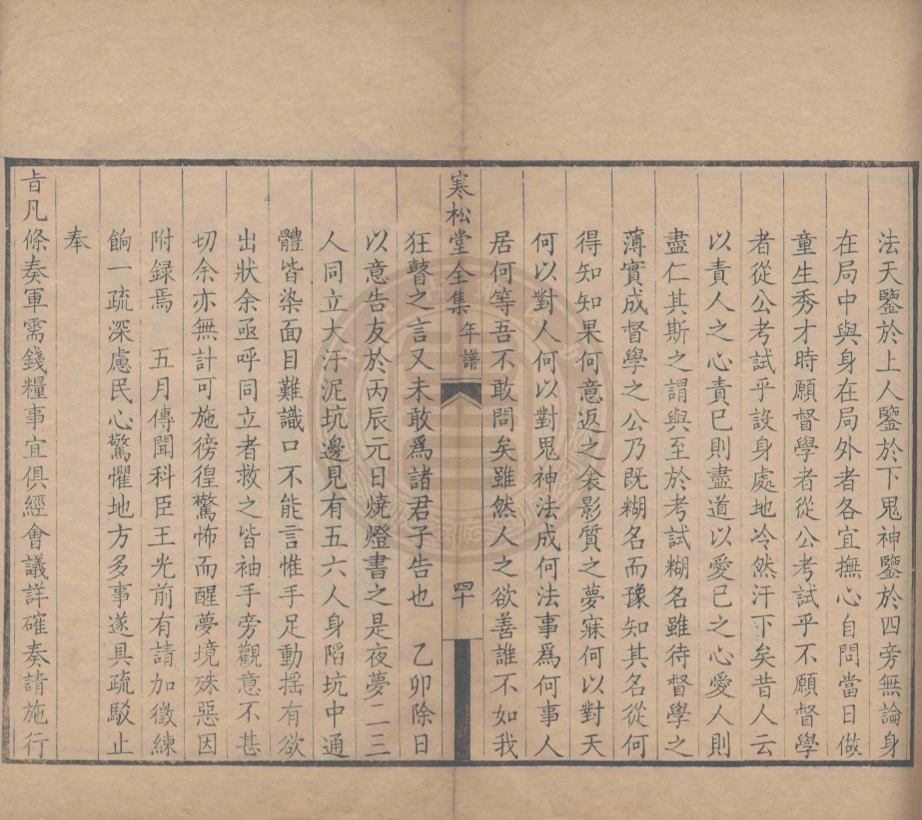 法天鑒於上人鑒於下鬼神鑒於四旁無論身
在局中與身在局外者各宜撫心自問當日做
童生秀才時願督學者從公考試乎不願督學
者從公考試乎設身處地冷然汗下矣昔人云
以責人之心責已則盡道以愛已之心愛人則
盡仁其斯之謂與至於考試糊名雖待督學之
薄實成督學之公乃既糊名而豫知其名從何
得知知果何意返之衾影質之夢寐何以對天
何以對人何以對鬼神法成何法事爲何事人
居何等吾不敢問矣雖然人之欲善誰不如我
寒松堂全集 年譜 四十
狂瞽之言又未敢爲諸君子告也 乙卯除日
以意告友於丙辰元日燒燈書之是夜夢二三
人同立大汙泥坑邊見有五六人身陷坑中通
體皆染面目難識口不能言惟手足動摇有欲
出狀余亟呼同立者救之皆袖手旁觀意不甚
切余亦無計可施徬徨驚怖而醒夢境殊惡因
附録焉 五月傳聞科臣王光前有請加徵練
餉一疏深慮民心驚懼地方多事遂具疏駁止
奉
旨凡條奏軍需錢糧事宜俱經會議詳確奏請施行